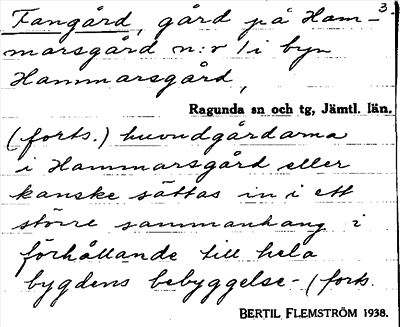 3
Fangård, gård på Ham-
marsgård n:r 1 i byn
Hammarsgård,
Ragunda sn och tg, Jämtl. län.
(forts.) huvudgårdarna
i Hammarsgård eller
kanske sättas in i ett
större sammanhang i
förhållande till hela
bygdens bebyggelse- (forts.
BERTIL FLEMSTRÖM 1938.